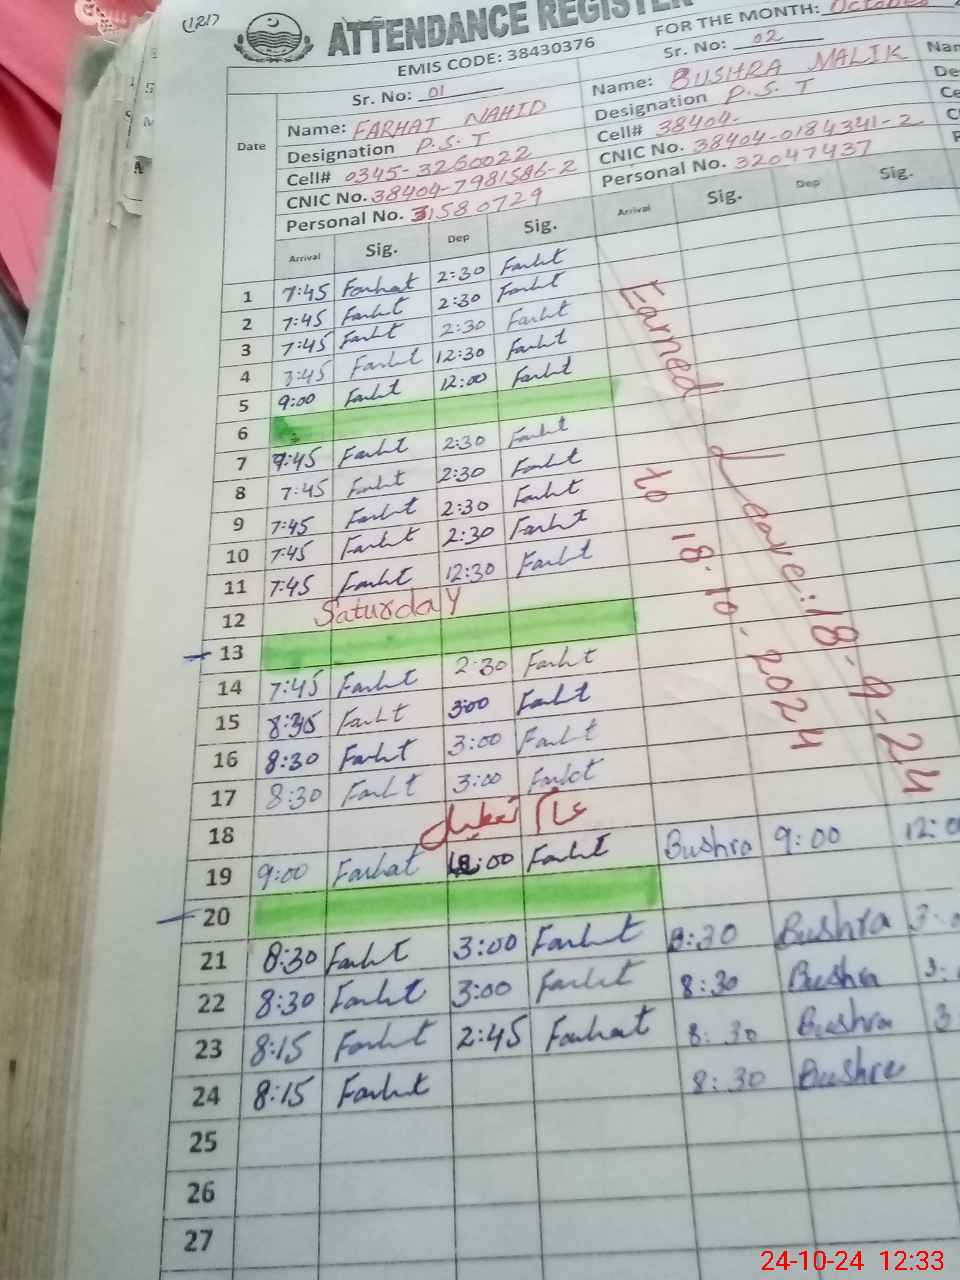 (121)
ATTENDANCE REGISTER
EMIS CODE: 38430376
FOR THE MONTH: October
Date
Sr. No: 01
Name: FARHAT NAHID
Designation P.S.T
Cell# 0345-3260022
CNIC No. 38404-7981586-2
Personal No. 31580729
Sr. No: 02
Name: BUSHRA MALIK
Designation P.S.T
Cell# 38404.
CNIC No. 38404-0184341-2
Personal No. 32047437
Arrival Sig. Dep Sig. Arrival Sig. Dep Sig.
1 7:45 Farhat 2:30 Farht
2 7:45 Farht 2:30 Farht
3 7:45 Farht 2:30 Farht
4 7:45 Farht 12:30 Farht
5 9:00 Farht 12:00 Farht
6
7 7:45 Farht 2:30 Farht
8 7:45 Farht 2:30 Farht
9 7:45 Farht 2:30 Farht
10 7:45 Farht 2:30 Farht
11 7:45 Farht 12:30 Farht
12 Saturday
13
14 7:45 Farht 2:30 Farht
15 8:30 Farht 3:00 Farht
16 8:30 Farht 3:00 Farht
17 8:30 Farht 3:00 Farht
18 عام تعطیل
19 9:00 Farhat 12:00 Farht Bushra 9:00 12:0
20
21 8:30 Farht 3:00 Farht 8:30 Bushra 3:0
22 8:30 Farht 3:00 Farht 8:30 Bushra 3:
23 8:15 Farht 2:45 Farhat 8:30 Bushra 3
24 8:15 Farht 8:30 Bushra
25
26
27
Earned Leave: 18-9-24
to 18-10-2024
24-10-24 12:33